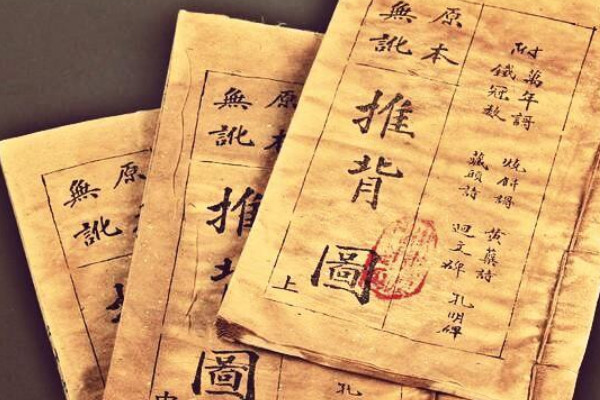 附
萬年謌
鐵冠數
燒餅謌
藏頭詩
黃蘗詩
迴文碑
孔明碑
原本
無訛
推背圖
上
原本
無訛
推背圖
孔
原
無訛